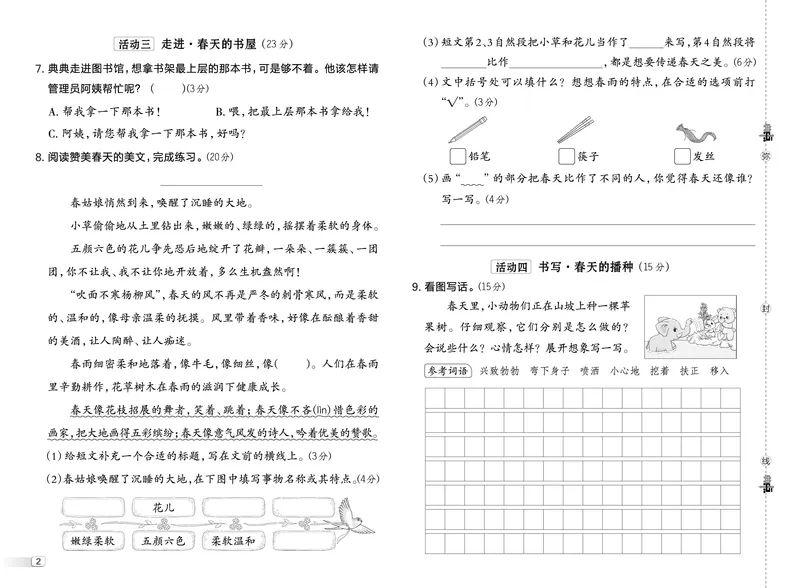 活动三 走进·春天的书屋(23分)
7. 典典走进图书馆,想拿书架最上层的那本书,可是够不着。他该怎样请
管理员阿姨帮忙呢? ( )(3分)
A. 帮我拿一下那本书! B. 喂,把最上层那本书拿给我!
C. 阿姨,请您帮我拿一下那本书,好吗?
8. 阅读赞美春天的美文,完成练习。(20分)
春姑娘悄然到来,唤醒了沉睡的大地。
小草偷偷地从土里钻出来,嫩嫩的、绿绿的,摇摆着柔软的身体。
五颜六色的花儿争先恐后地绽开了花瓣,一朵朵、一簇簇、一团
团,你不让我、我不让你地开放着,多么生机盎然啊!
“吹面不寒杨柳风”,春天的风不再是严冬的刺骨寒风,而是柔软
的、温和的,像母亲温柔的抚摸。风里带着香味,好像在酝酿着香甜
的美酒,让人陶醉、让人痴迷。
春雨细密柔和地落着,像牛毛,像细丝,像( )。人们在春雨
里辛勤耕作,花草树木在春雨的滋润下健康成长。
春天像花枝招展的舞者,笑着、跳着;春天像不吝(lìn)惜色彩的
画家,把大地画得五彩缤纷;春天像意气风发的诗人,吟着优美的赞歌。
(1)给短文补充一个合适的标题,写在文前的横线上。(3分)
(2)春姑娘唤醒了沉睡的大地,在下图中填写事物名称或其特点。(4分)
花儿
嫩绿柔软 五颜六色 柔软温和
2
(3)短文第2、3自然段把小草和花儿当作了______来写,第4自然段将
________比作________________,都是想要传递春天之美。(6分)
(4)文中括号处可以填什么? 想想春雨的特点,在合适的选项前打
“√”。(3分)
铅笔 筷子 发丝
(5)画“____”的部分把春天比作了不同的人,你觉得春天还像谁?
写一写。(4分)
活动四 书写·春天的播种(15分)
9. 看图写话。(15分)
春天里,小动物们正在山坡上种一棵苹
果树。仔细观察,它们分别是怎么做的?
会说些什么? 心情怎样? 展开想象写一写。
参考词语 兴致勃勃 弯下身子 喷洒 小心地 挖着 扶正 移入
弥
封
线